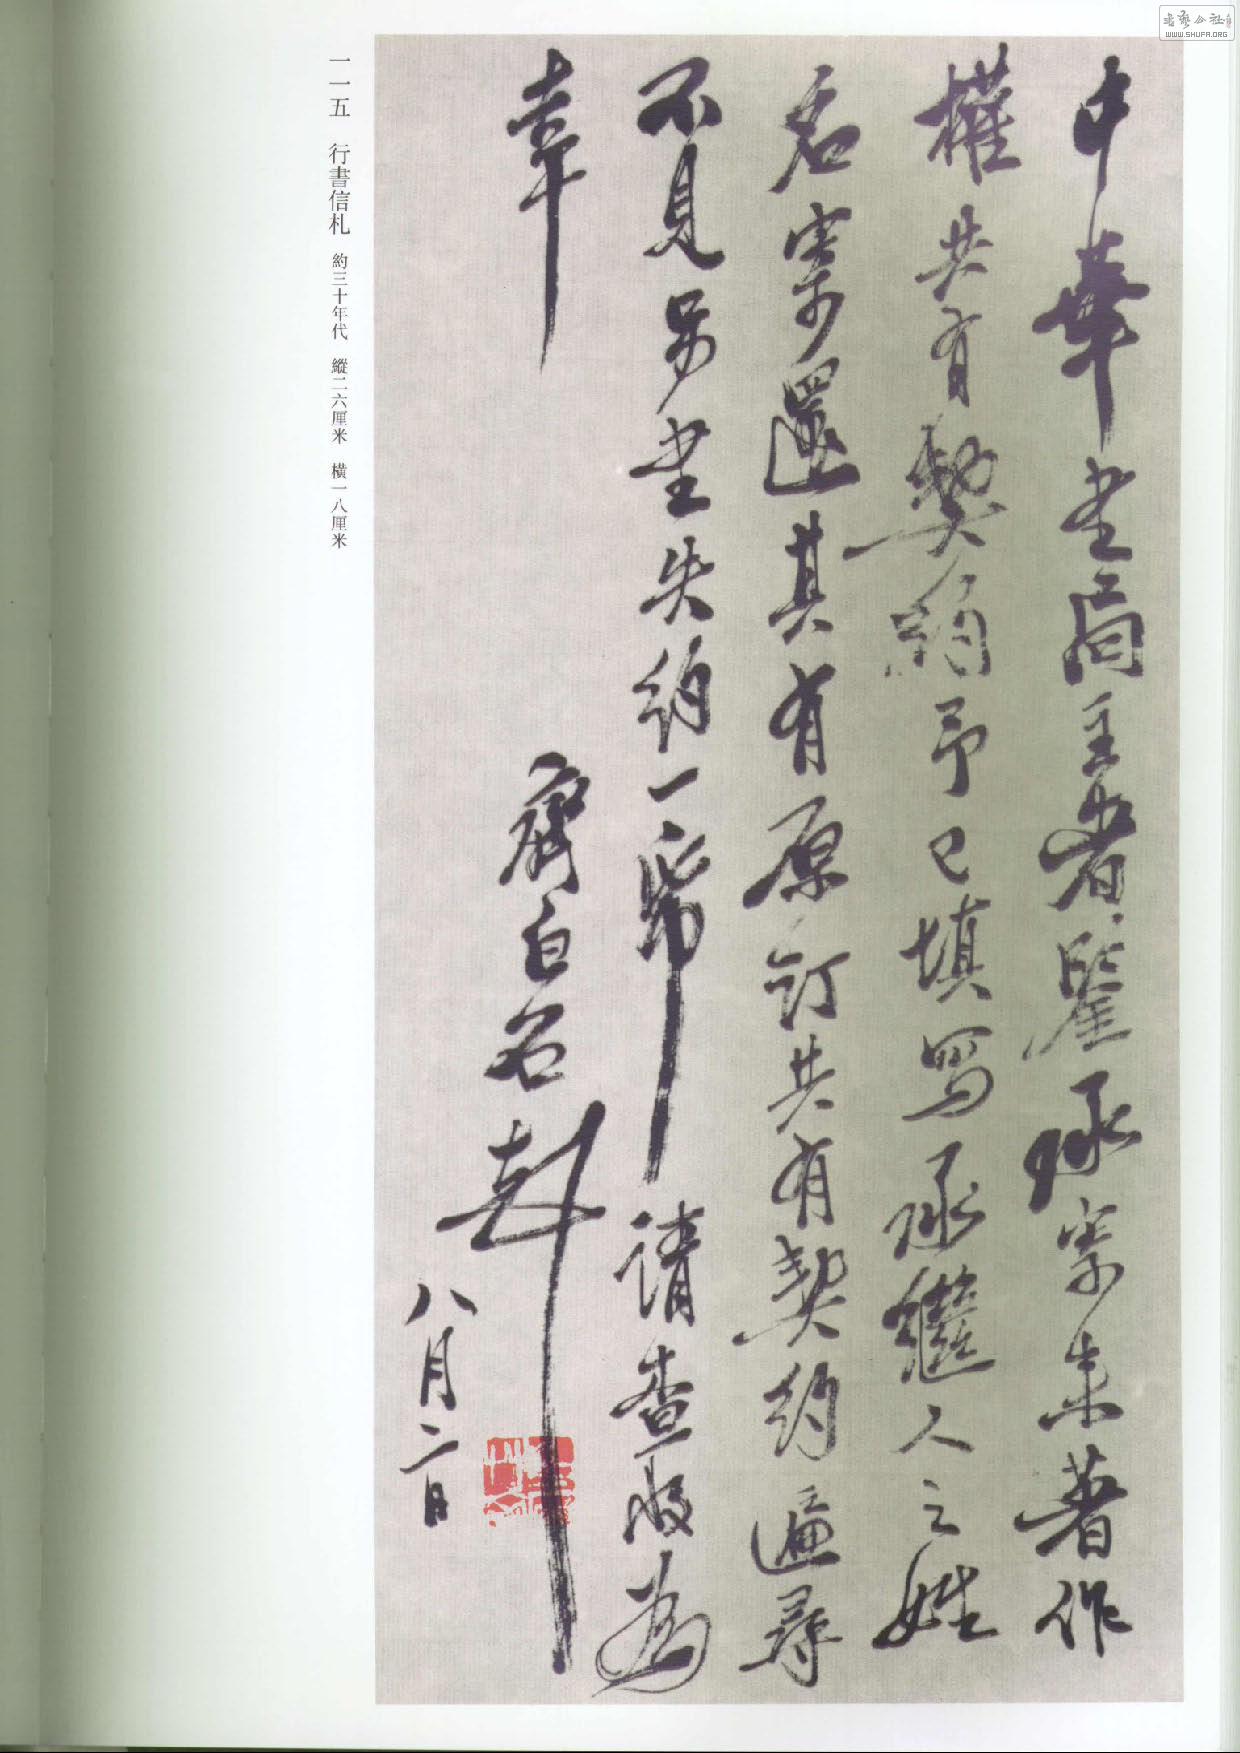 中華書局主者鑒承寄來著作
權共有契約予已填寫承繼人之姓
名寄還其有原訂共有契約遍尋
不見另書失約一紙請查收為
幸
齊白石
八月二日
一一五 行書信札 約三十年代 縱二六厘米 橫一八厘米
WWW.SHUFA.ORG